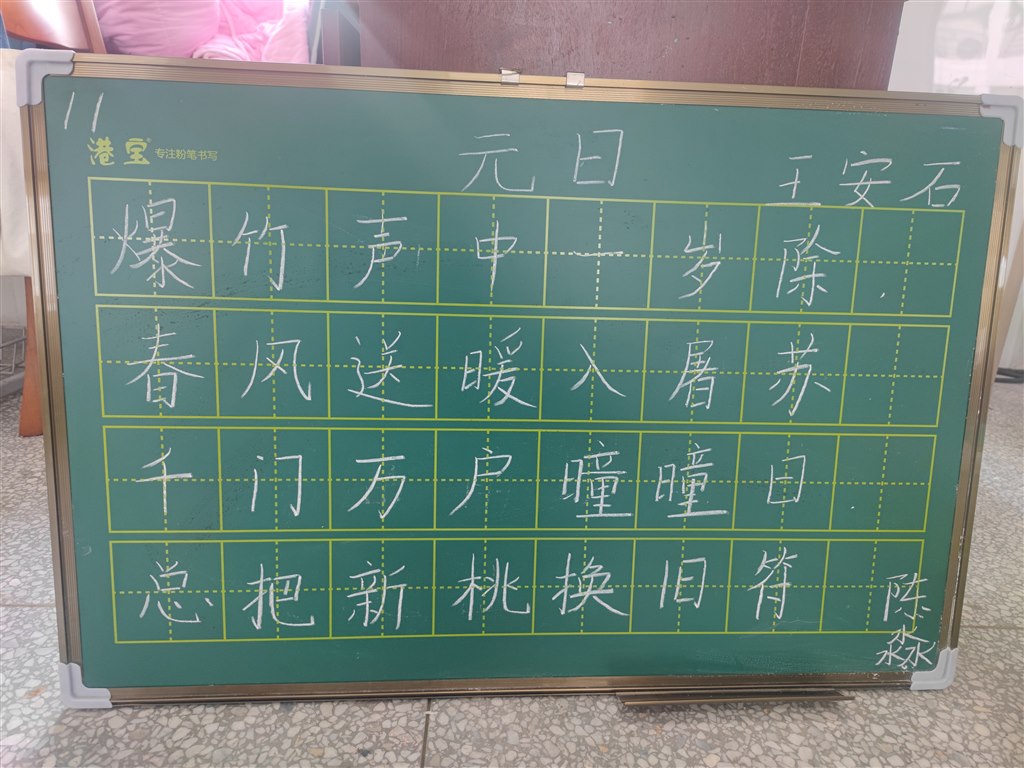 11
港宝 专注粉笔书写
元日
王安石
爆竹声中一岁除.
春风送暖入屠苏
千门万户曈曈日
总把新桃换旧符
陈
淼